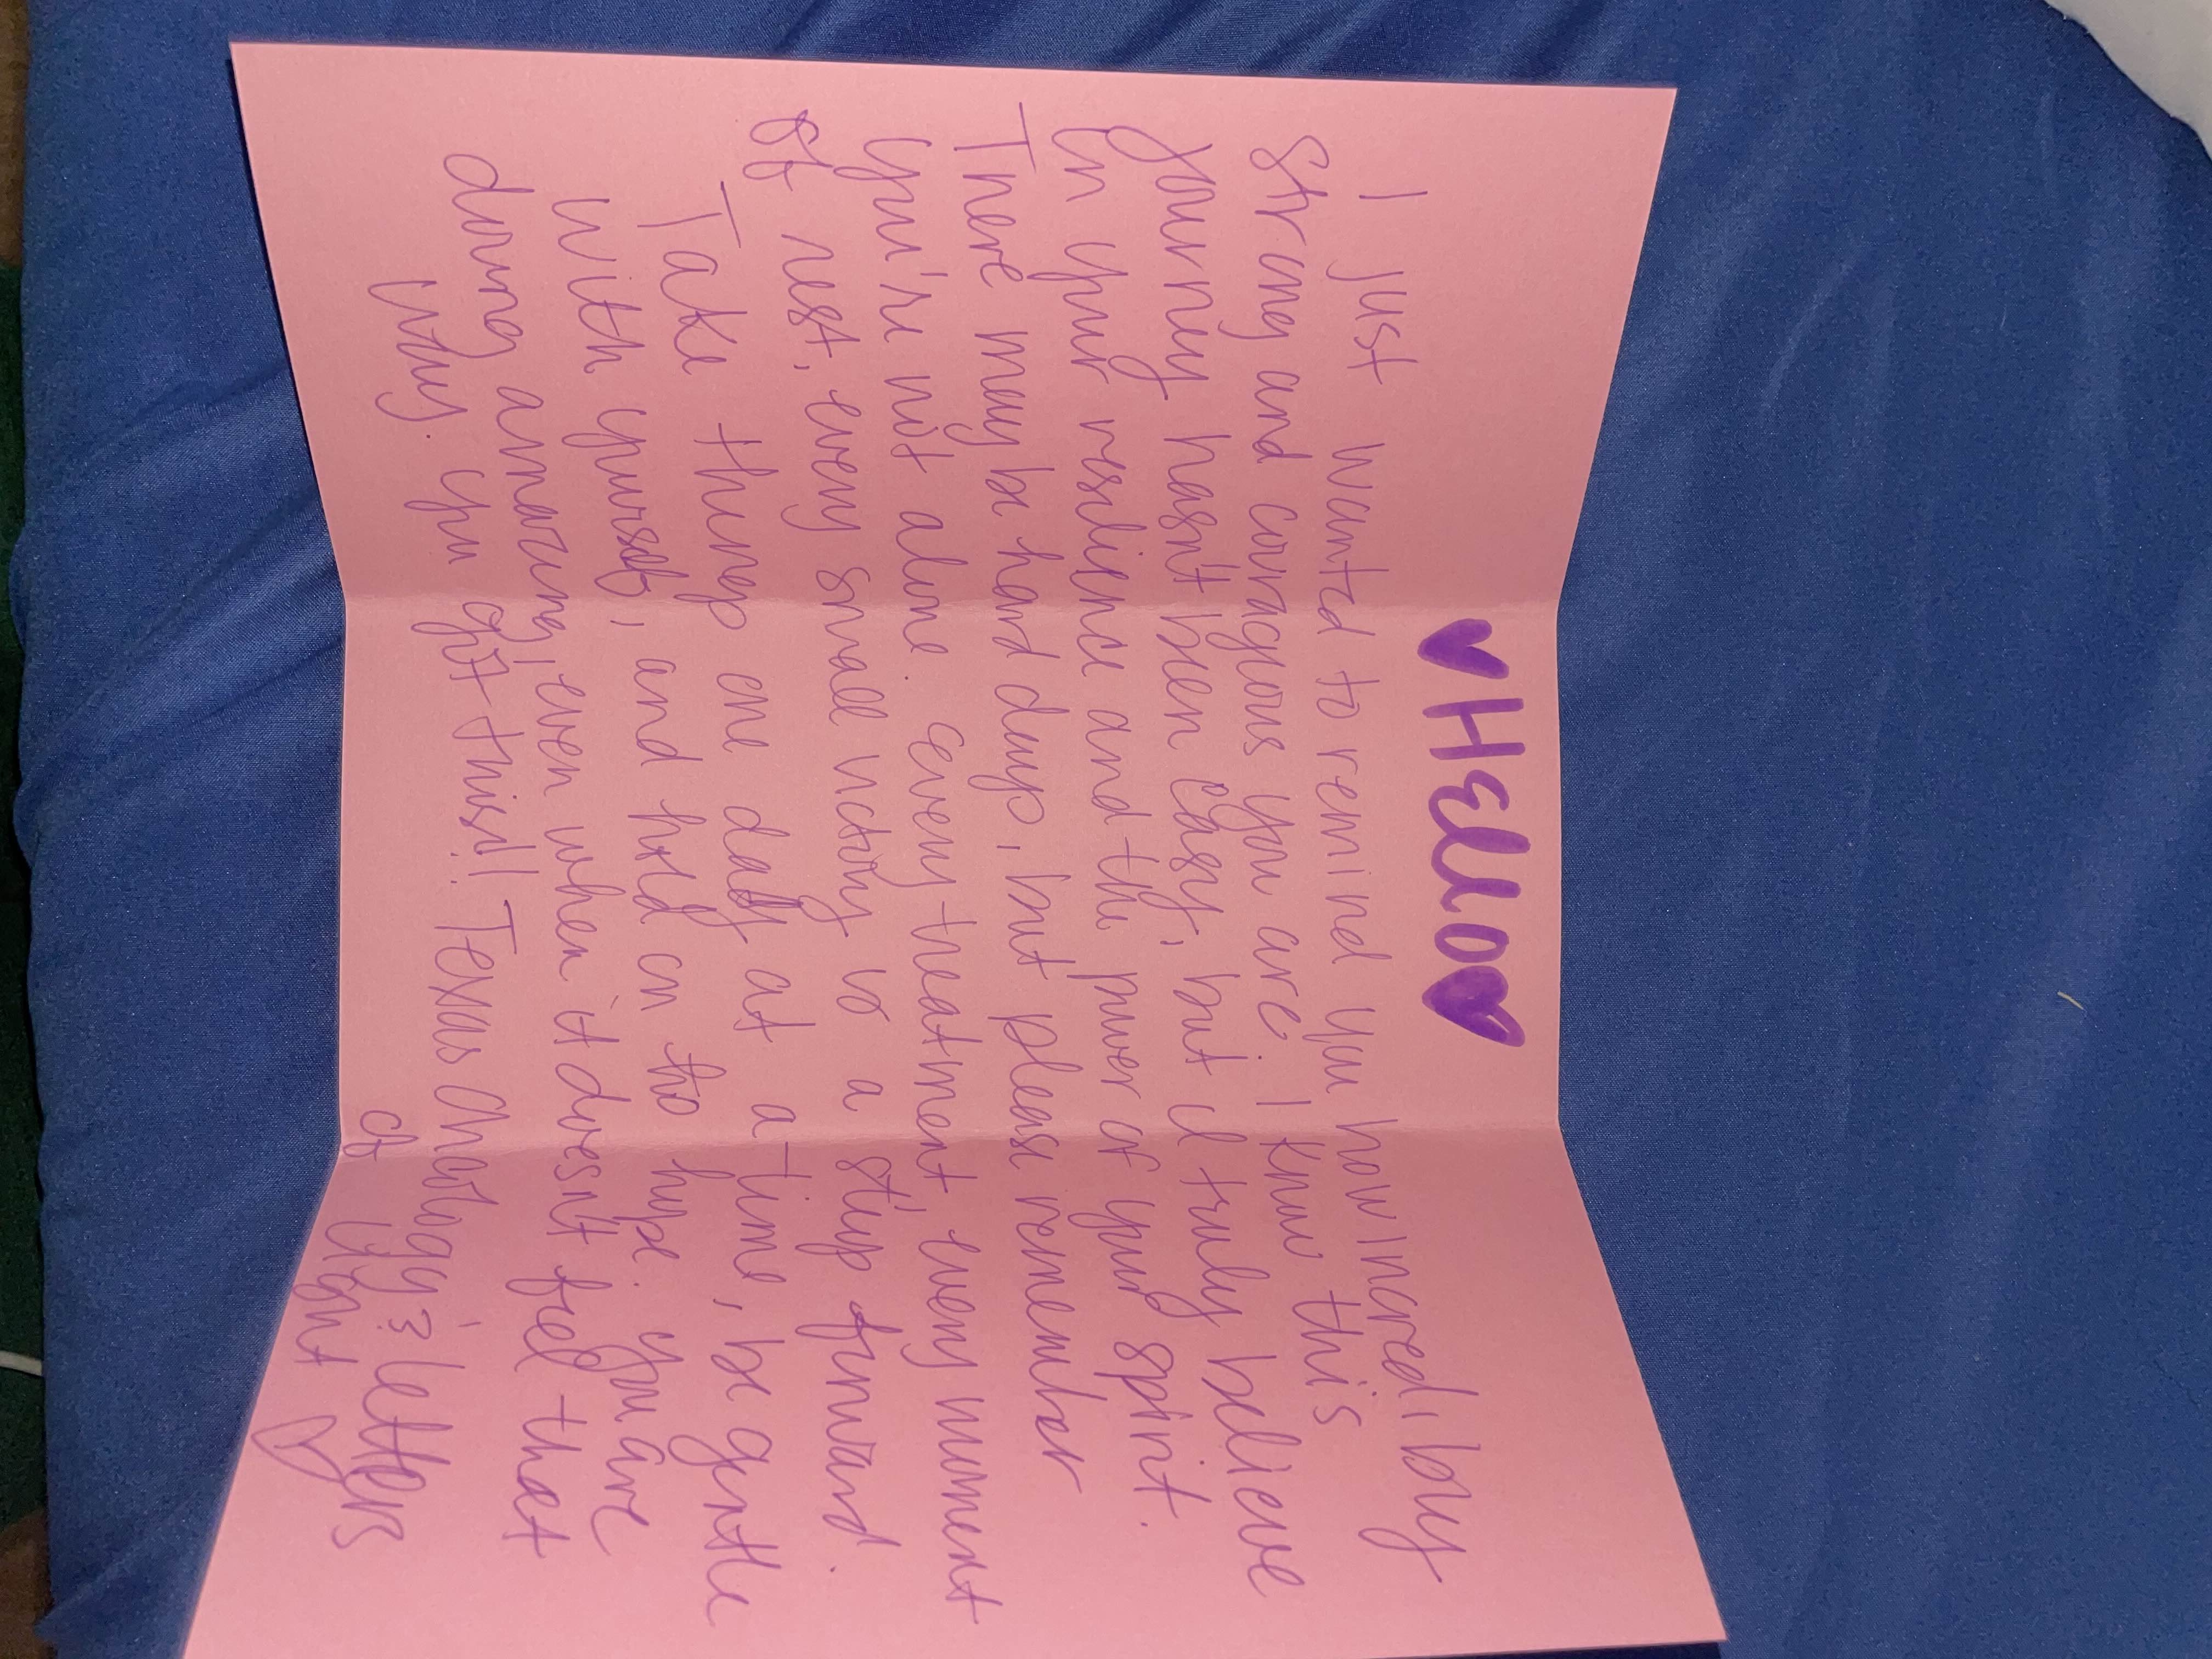 ♥HEllO♥
I just wanted to remind you how incredibly
strong and courageous you are. I know this
journey hasn't been easy, but I truly believe
in your resilience and the power of your spirit.
There may be hard days, but please remember
you're not alone. every treatment, every moment
of rest, every small victory is a step forward.
Take things one day at a time, be gentle
with yourself, and hold on to hope. you are
doing amazing, even when it doesn't feel that
way. you got this!! Texas Oncology & letters
of light ♡